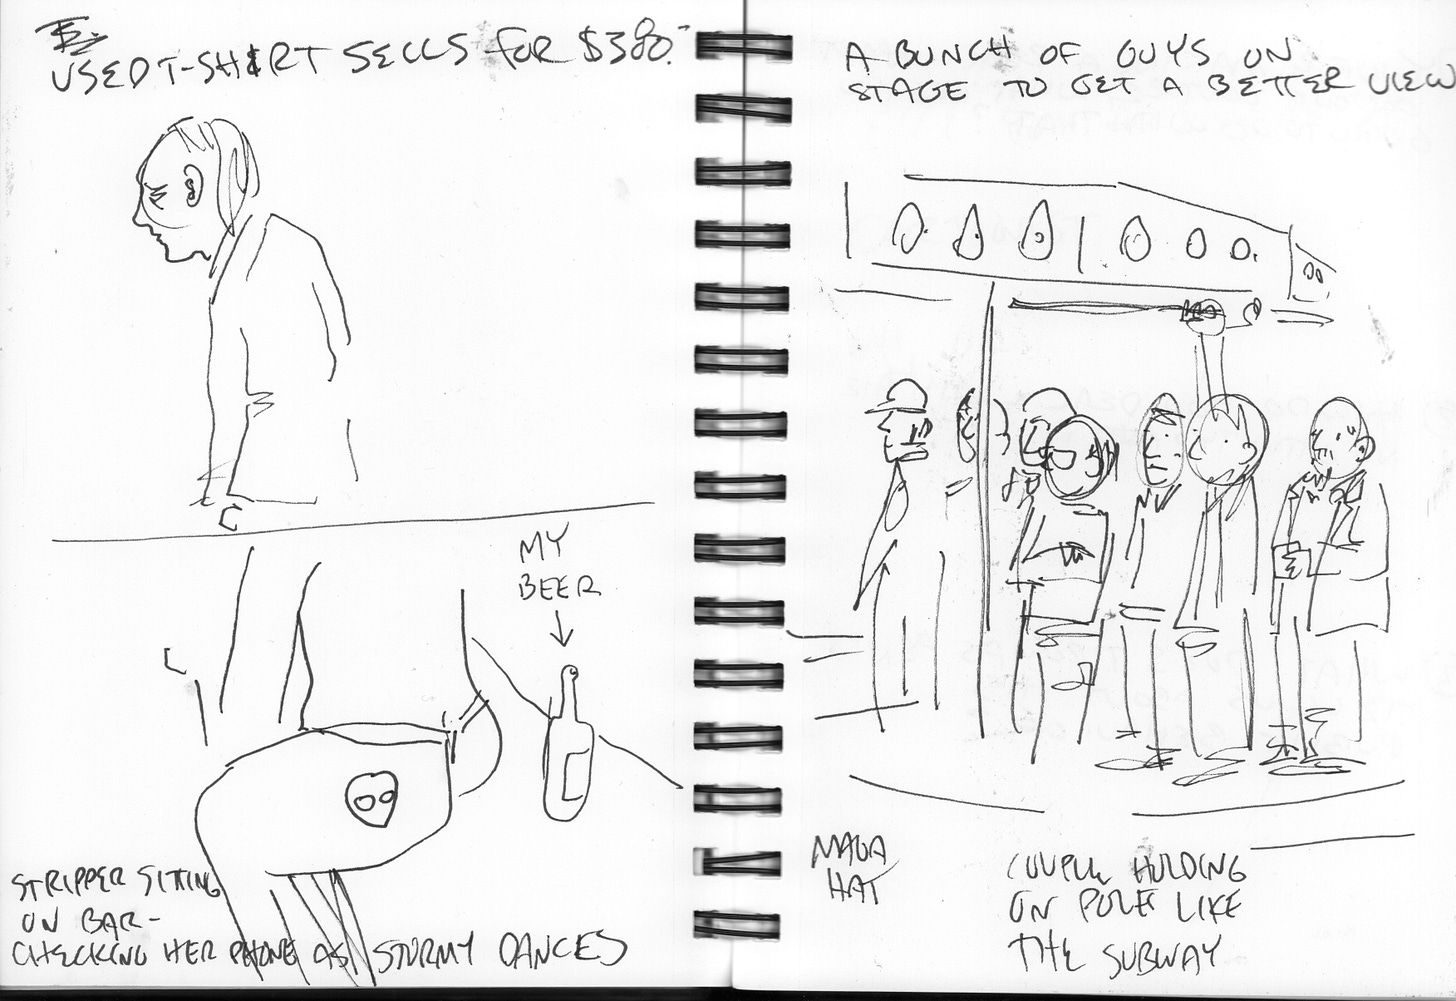 USED T-SHIRT SELLS FOR $380.-
MY
BEER
STRIPPER SITTING
ON BAR-
CHECKING HER PHONE AS STORMY DANCES
A BUNCH OF GUYS ON
STAGE TO GET A BETTER VIEW
MAGA
HAT
COUPLE HOLDING
ON POLE LIKE
THE SUBWAY